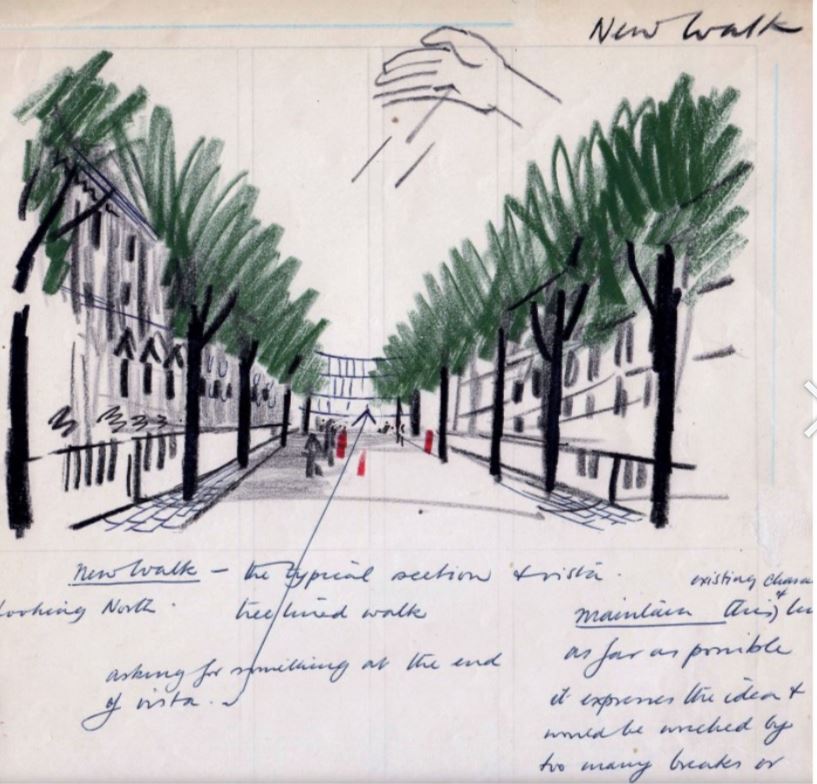 New Walk
New Walk — the typical section & vista.
looking North. tree lined walk
asking for something at the end
of vista.
existing chara
maintain this) &
as far as possible
it expresses the idea &
would be wrecked by
too many breaks or